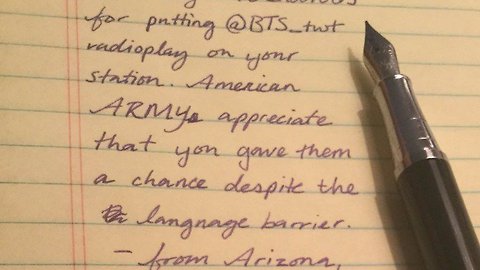 for putting @BTS_twt
radioplay on your
station. American
ARMYs appreciate
that you gave them
a chance despite the
language barrier.
- from Arizona,